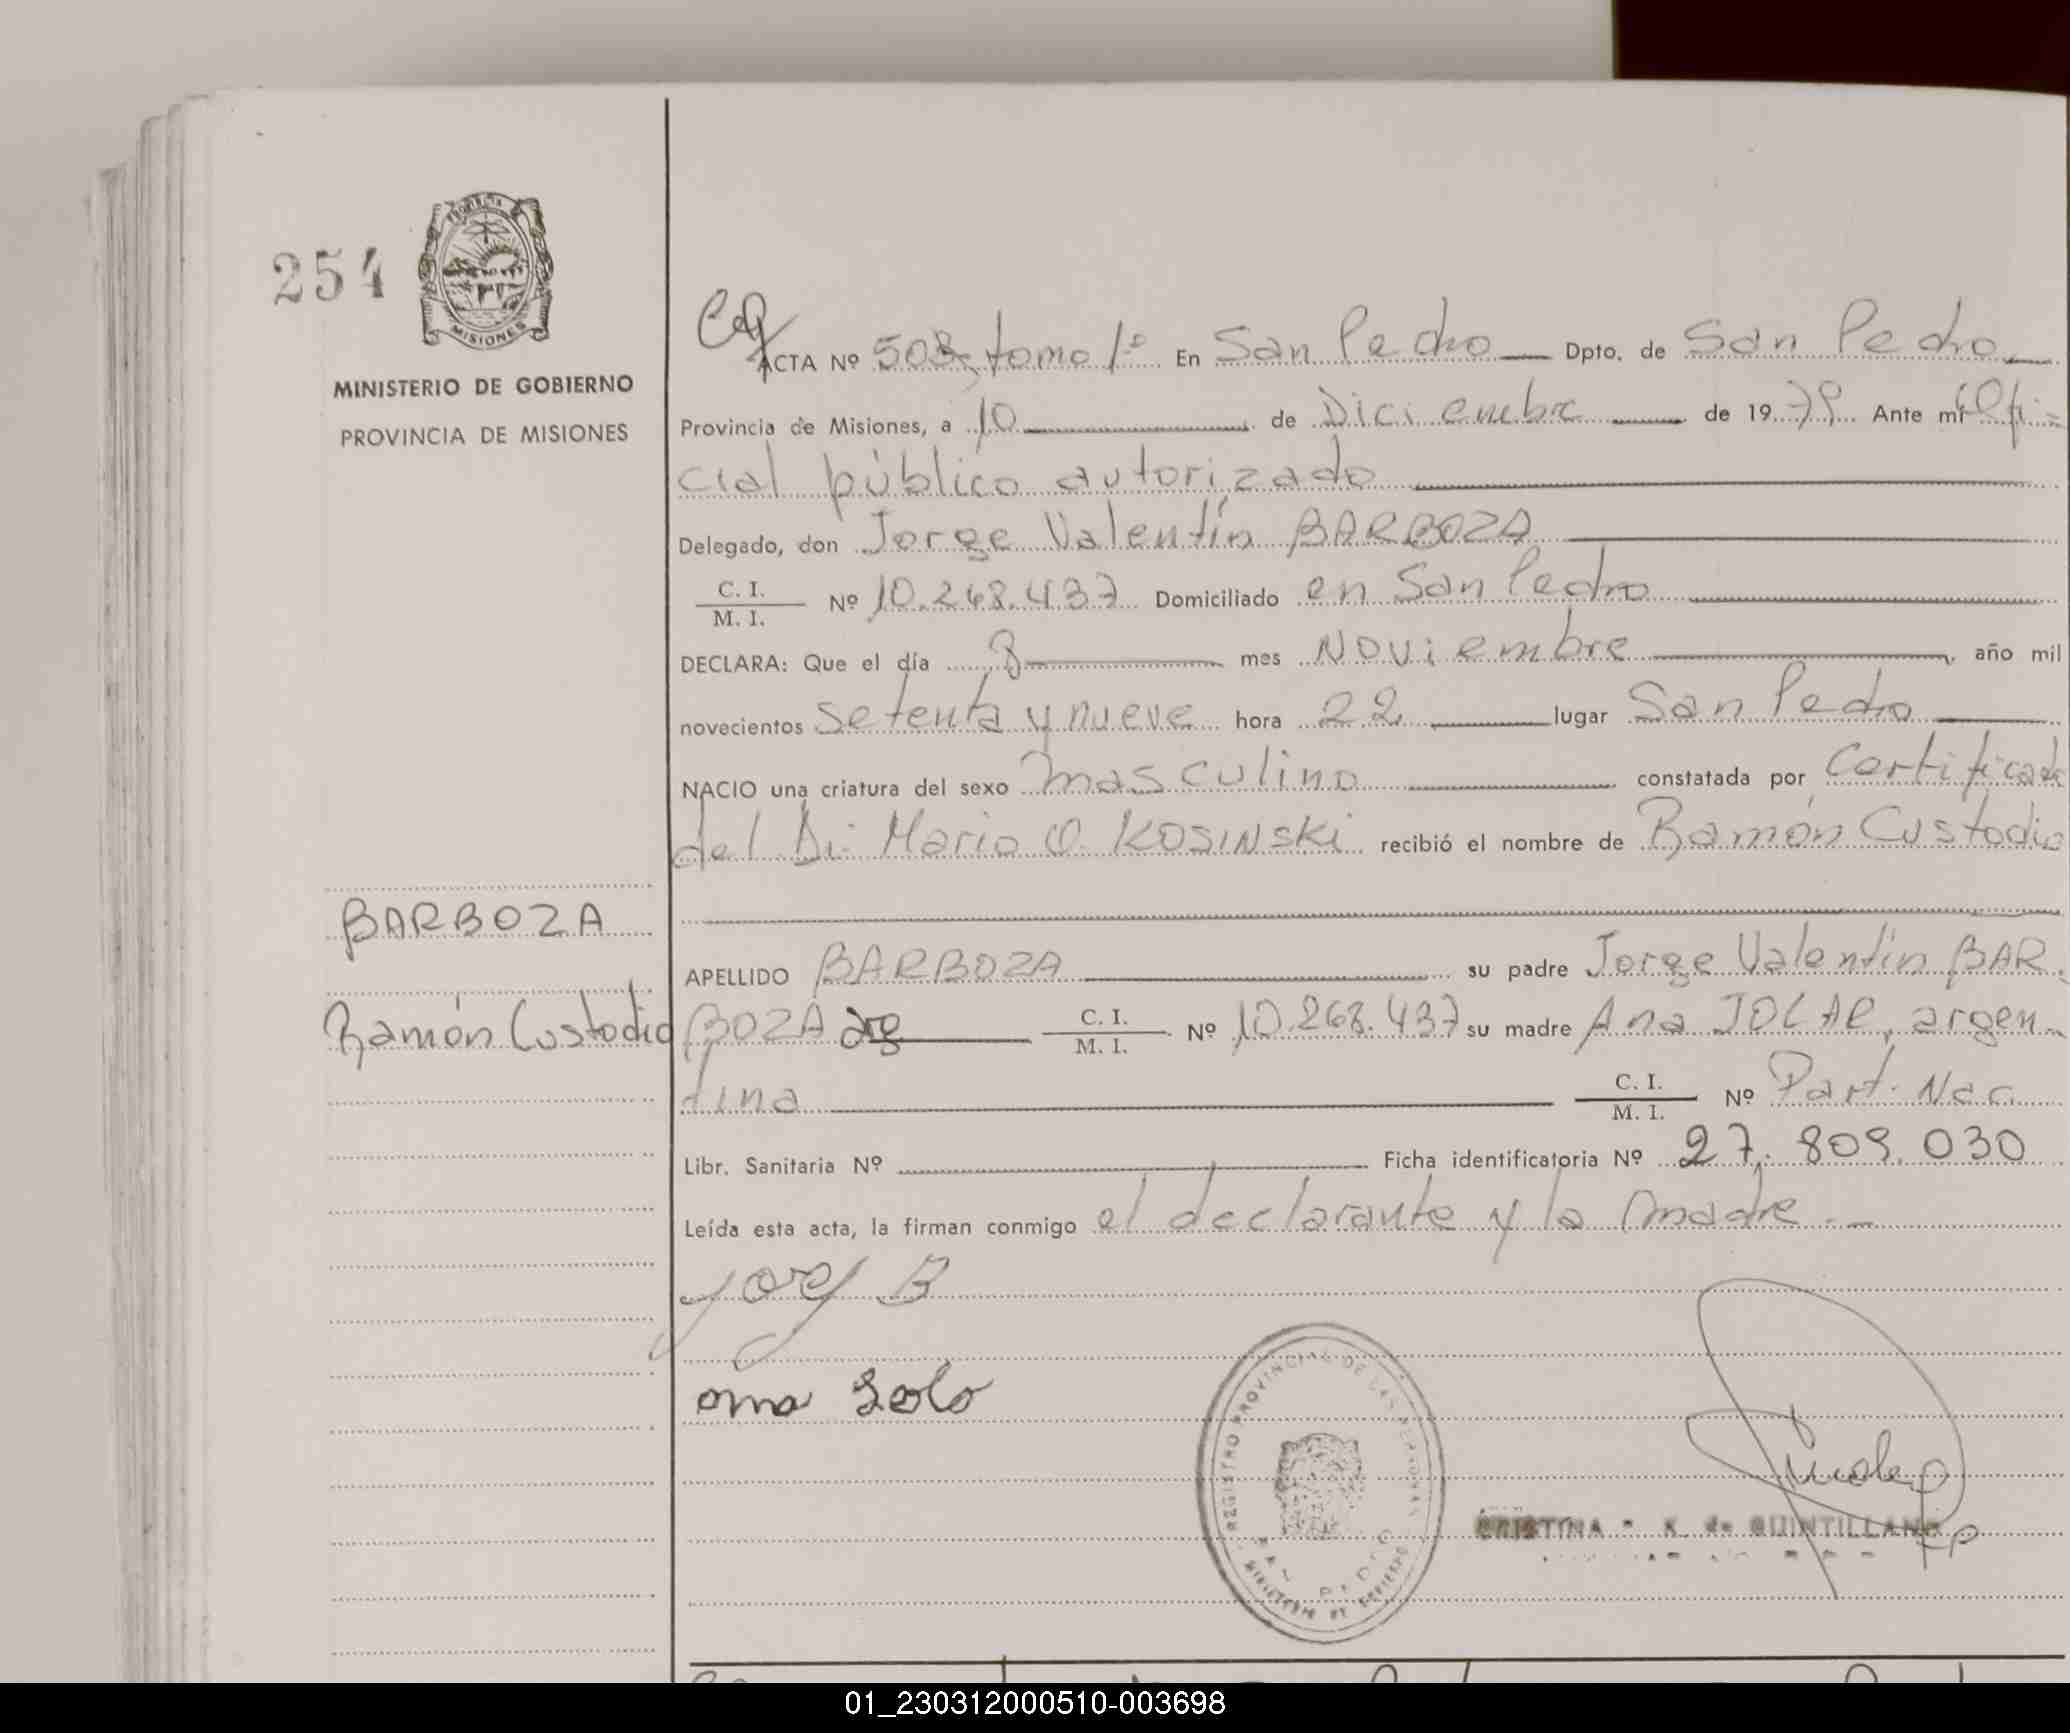 254
PROVINCIA
MISIONES
MINISTERIO DE GOBIERNO
PROVINCIA DE MISIONES
ACTA Nº 503, tomo 1º En San Pedro Dpto. de San Pedro
Provincia de Misiones, a 10 de Diciembre de 1979 Ante mí Ofi-
cial público autorizado
Delegado, don Jorge Valentín BARBOZA
C. I.
M. I. Nº 10.268.437 Domiciliado en San Pedro
DECLARA: Que el día 8 mes Noviembre, año mil
novecientos setenta y nueve hora 22 lugar San Pedro
NACIO una criatura del sexo masculino constatada por Certificado
del Dr. Mario O. KOSINSKI recibió el nombre de Ramón Custodio
BARBOZA
Ramón Custodio
APELLIDO BARBOZA su padre Jorge Valentín BAR-
BOZA arg C. I.
M. I. Nº 10.268.437 su madre Ana JOLAR, argen-
tina C. I.
M. I. Nº Part. Nac.
Libr. Sanitaria Nº Ficha identificatoria Nº 27.809.030
Leída esta acta, la firman conmigo el declarante y la madre.-
Jorg B
ona Solo
REGISTRO PROVINCIAL DE LAS PERSONAS
SAN PEDRO
MINISTERIO DE GOBIERNO
CRISTINA K. de QUINTILLAN
01_230312000510-003698